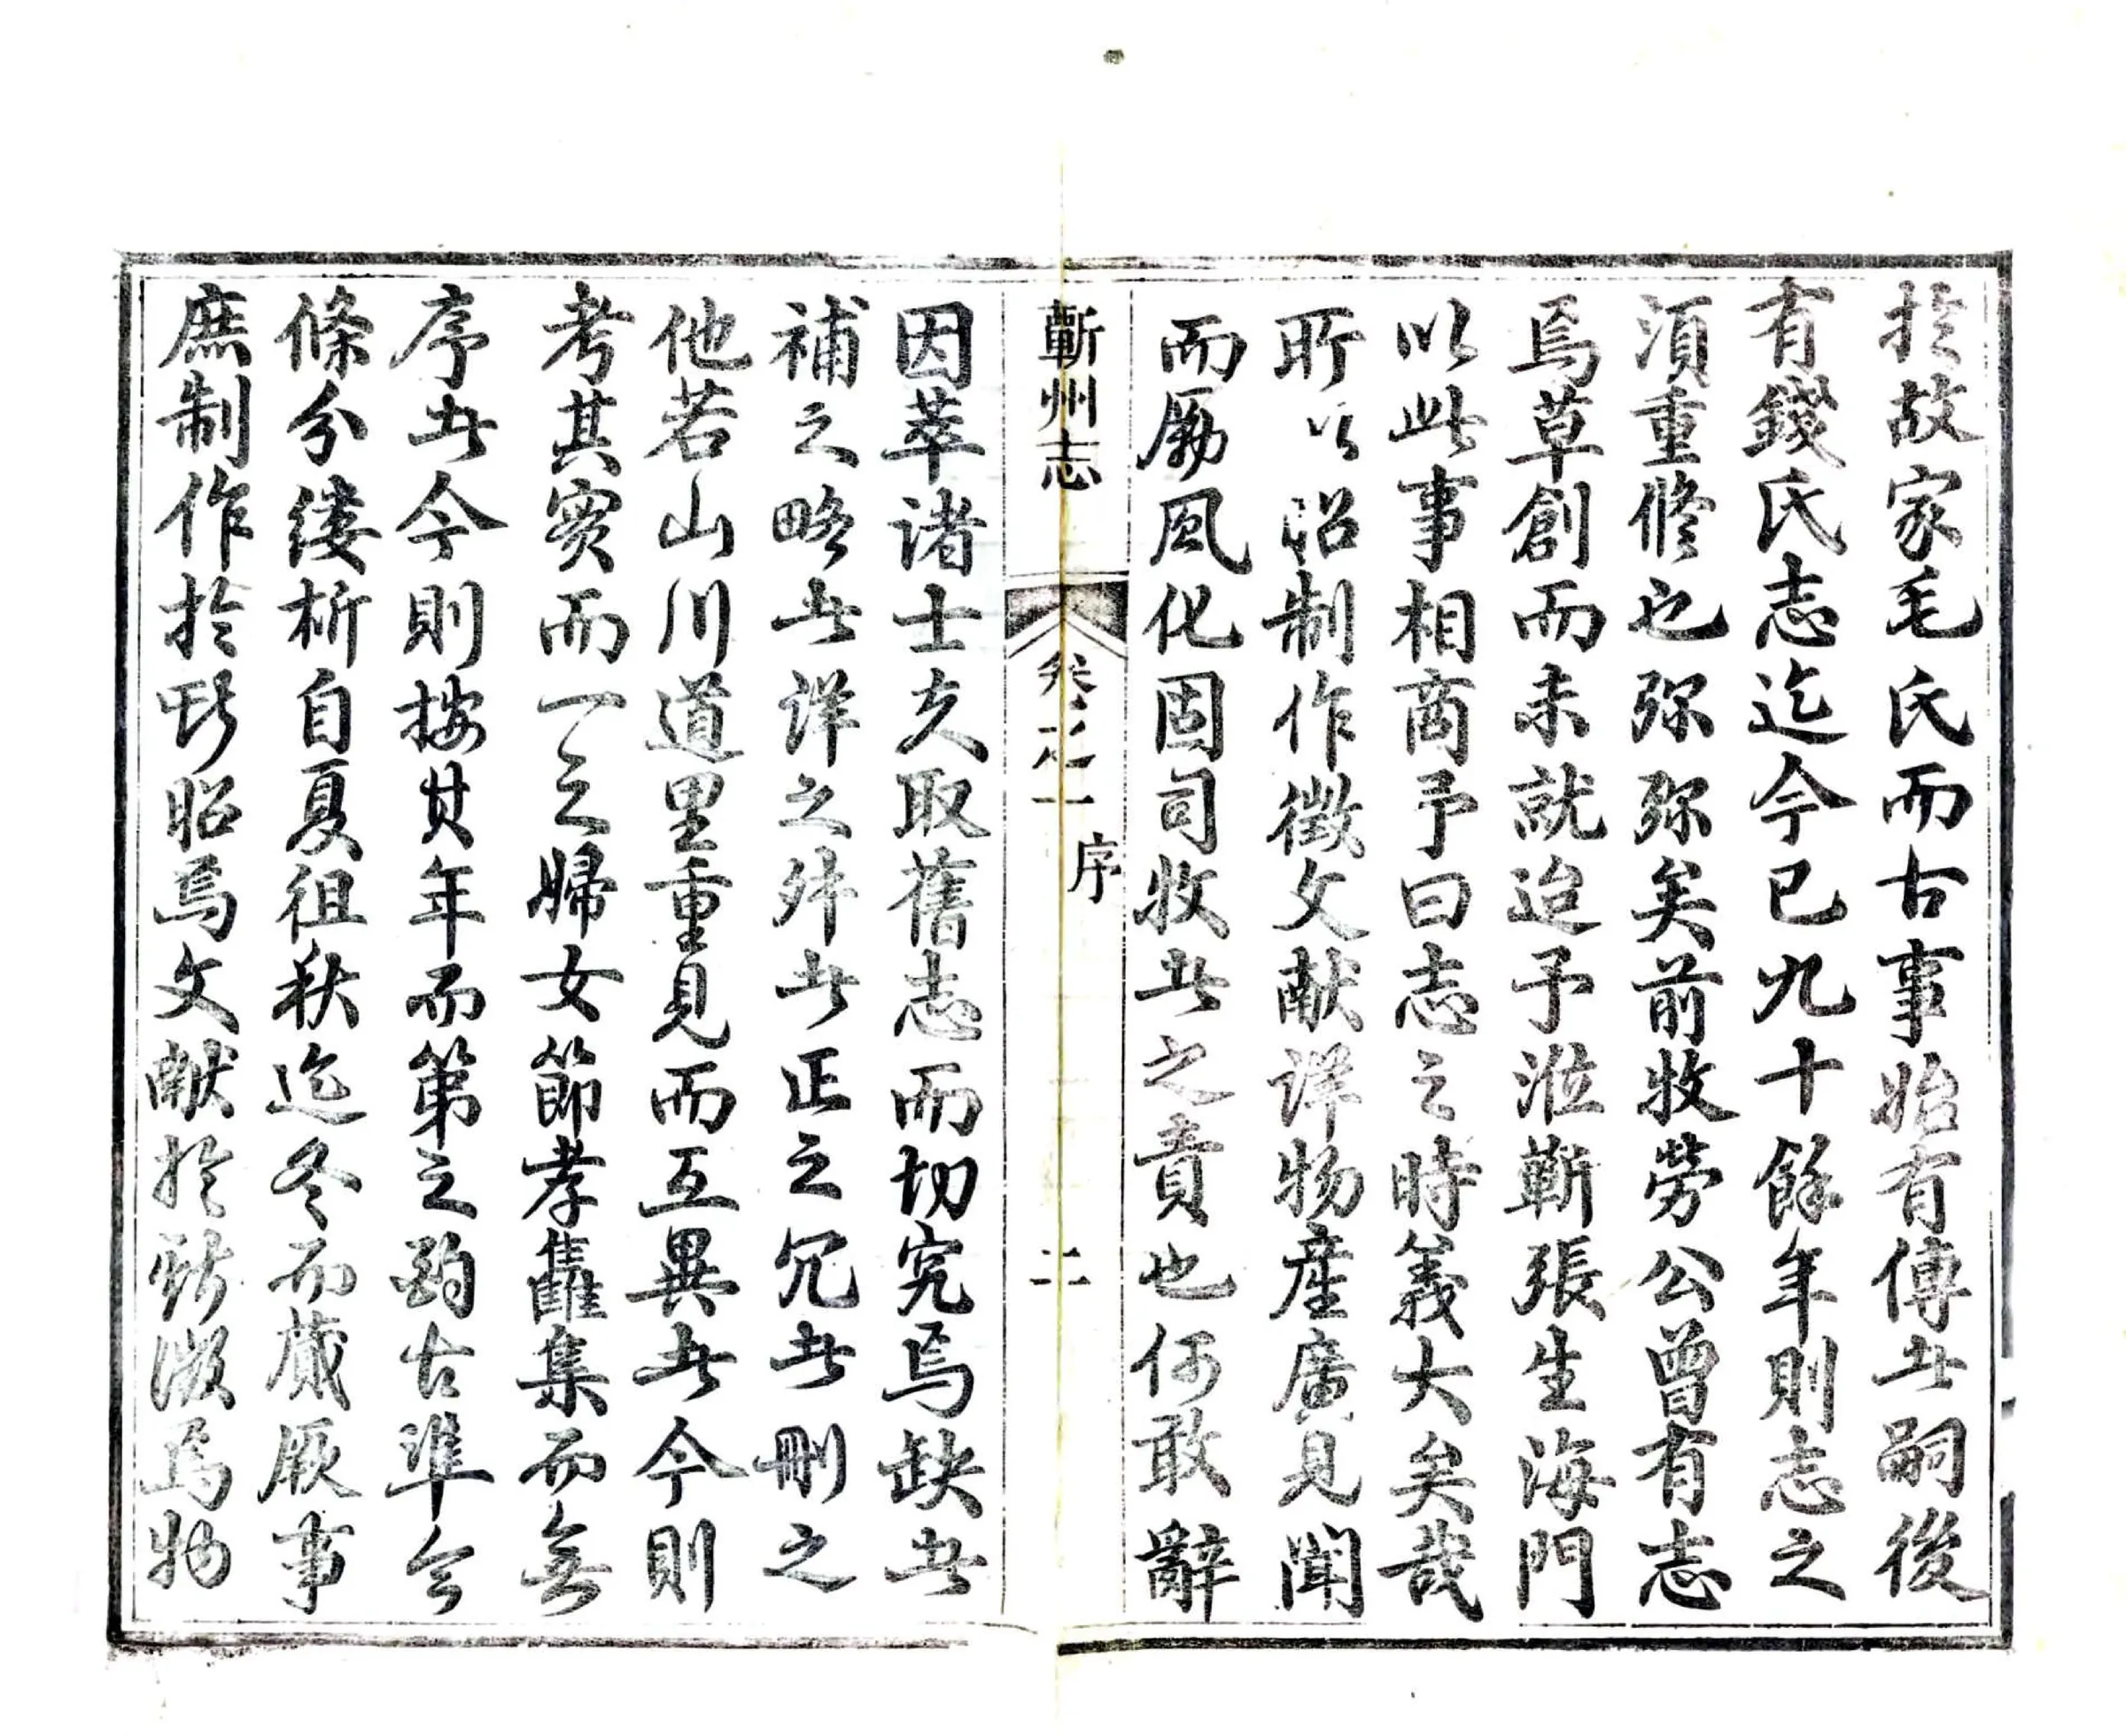 於故家毛氏而古事始有傳者嗣後
有錢氏志迄今已九十餘年則志之
須重修也弥弥矣前牧勞公曾有志
焉草創而未就迨予涖蘄張生海門
以此事相商予曰志之時義大矣哉
所以昭制作徵文献詳物產廣見聞
而勵風化固司牧者之責也何敢辭
蘄州志
卷之一
序
二
因萃诸士夫取舊志而切究焉缺者
補之略者詳之舛者正之冗者刪之
他若山川道里重見而互異者今則
考其实而一之婦女節孝雜集而無
序者今則按其年而第之酌古準今
條分縷析自夏徂秋迄冬而蕆厥事
庶制作於斯昭焉文献於斯徵焉物